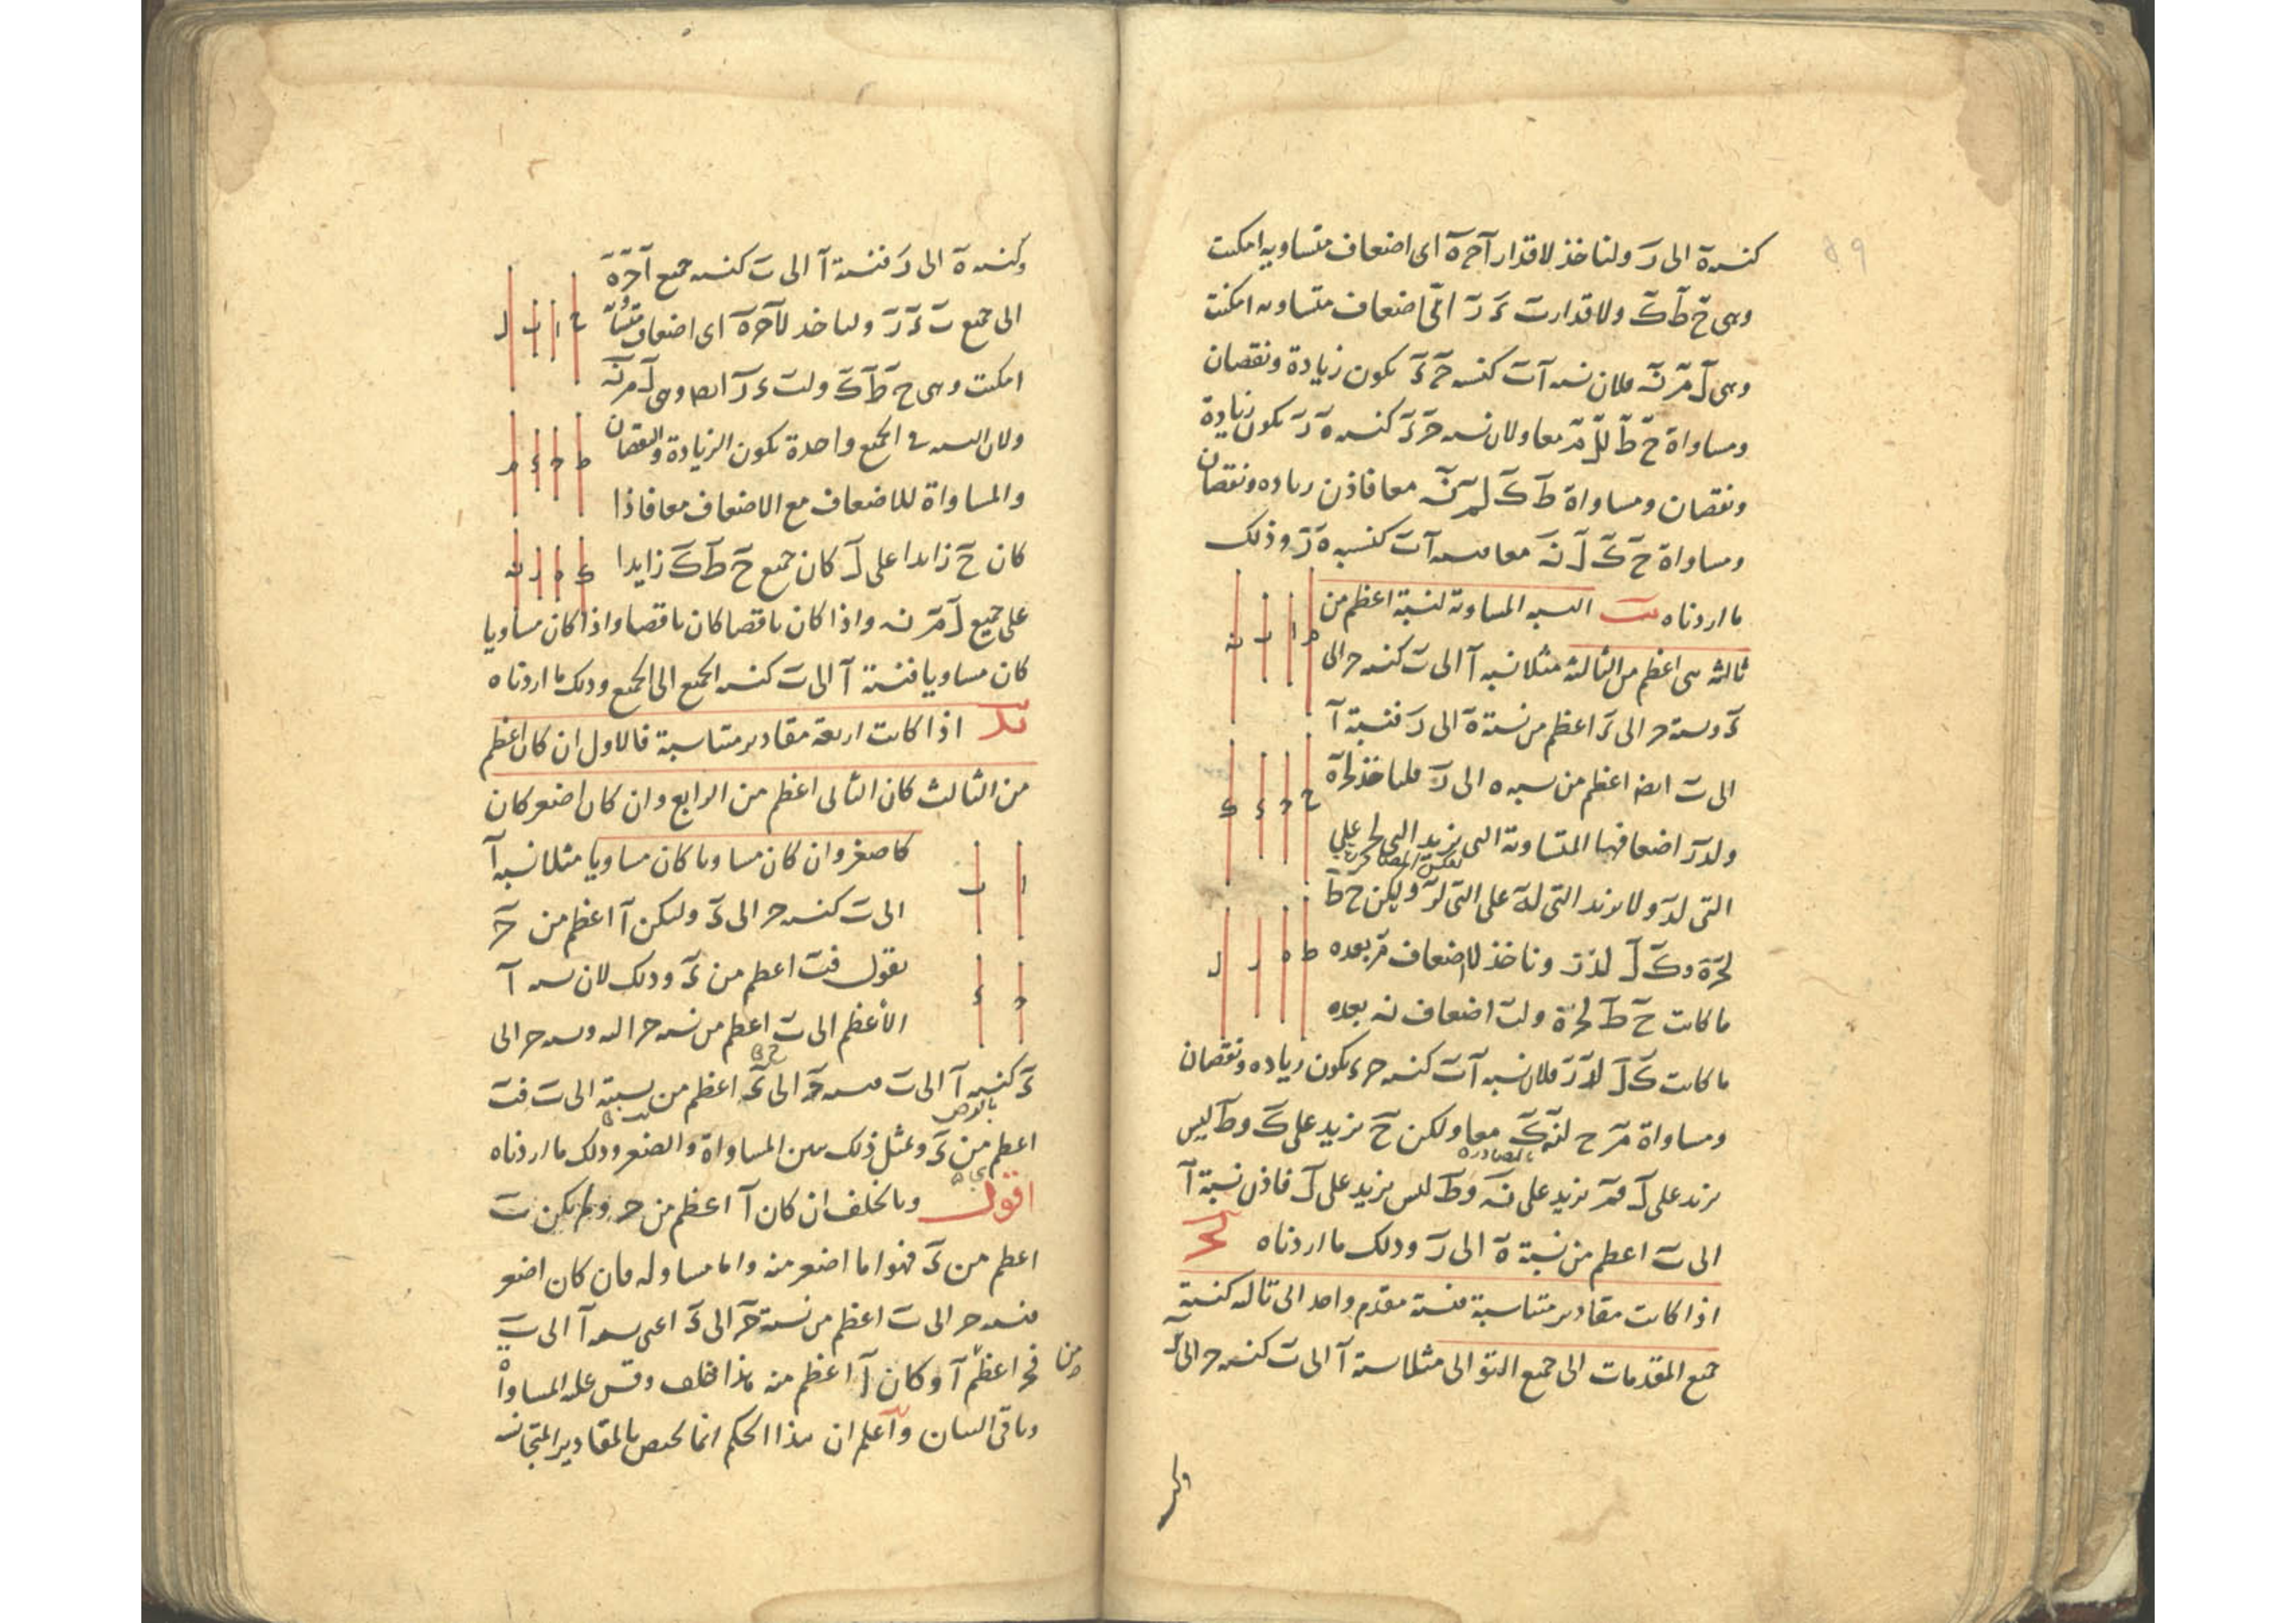 ٥٩
كنسبة ه الى ر ولناخذ لاقدار آ ح ه اى اضعاف متساويه امكنت
وهى ح ط ك ولاقدار ب ء ر اى اضعاف متساويه امكنت
وهى ل م ن فلان نسبه آ ب كنسبه ح ء يكون زيادة ونقصان
ومساواة ح ط لل م معا ولان نسبه ح ء كنسبه ه ر يكون زيادة
ونقصان ومساواة ط ك لم ن معا فاذن زياده ونقصان
ومساواة ح ك ل ن معا فنسبه آ ب كنسبه ه ر وذلك
ما اردناه النسبه المساويه لنسبة اعظم من
ثالثه هى اعظم من الثالثه مثلا نسبه آ الى ب كنسبه ح الى
ء ونسبة ح الى ء اعظم من نسبة ه الى ر فنسبة آ
الى ب ايضا اعظم من نسبه ه الى ر فلناخذ لح ه
ولد ر اضعافها المتساويه التى يزيد التى لح على
التى لد ولا يزيد التى له على التى لر وليكن ح ط
لح ه وك ل لد ر وناخذ لا اضعاف م بعده
ما كانت ح ط لح ه ولب اضعاف ن بعده
ما كانت ك ل لد ر فلان نسبه آ ب كنسبه ح ء يكون زياده ونقصان
ومساواة م ح لن ك معا ولكن ح يزيد على ك وط ليس
بالمصادره
يزيد على ل فم يزيد على ن وط ليس يزيد على ل فاذن نسبة آ
الى ب اعظم من نسبة ه الى ر وذلك ما اردناه
اذا كانت مقادير متناسبة فنسبة مقدم واحد الى تاليه كنسبة
جميع المقدمات الى جميع التوالى مثلا نسبة آ الى ب كنسبه ح الى ء
وكنسبه ه الى ر فنسبة آ الى ب كنسبه جميع آ ح ه
الى جميع ب ء ر ولناخذ لا ح ه اى اضعاف متساوية
امكنت وهى ح ط ك ولب ء ر ايضا وهى ل م ن
ولان النسبه فى الجميع واحدة يكون الزيادة والنقصان
والمساواة للاضعاف مع الاضعاف معا فاذا
كان ح زايدا على ل كان جميع ح ط ك زايدا
على جميع ل م ن واذا كان ناقصا كان ناقصا واذا كان مساويا
كان مساويا فنسبة آ الى ب كنسبه الجميع الى الجميع وذلك ما اردناه
يد اذا كانت اربعة مقادير متناسبة فالاول ان كان اعظم
من الثالث كان الثانى اعظم من الرابع وان كان اصغر كان
اصغر وان كان مساويا كان مساويا مثلا نسبه آ
الى ب كنسبه ح الى ء وليكن آ اعظم من ح
نقول فب اعظم من ء وذلك لان نسبه آ
الاعظم الى ب اعظم من نسبه ح اليه ونسبه ح الى
ء كنسبه آ الى ب فنسبه ح الى ء اعظم من نسبته الى ب فب
اعظم من ء وبمثل ذلك يتبين المساواة والصغر وذلك ما اردناه
اقول وبالخلف ان كان آ اعظم من ح ولم يكن ب
اعظم من ء فهو اما اصغر منه واما مساو له فان كان اصغر
فنسبه ح الى ب اعظم من نسبة ح الى ء اعنى نسبه آ الى ب
فح اعظم من آ وكان آ اعظم منه هذا خلف وقس عليه المساواة
وباقى البيان واعلم ان هذا الحكم انما يختص بالمقادير المتجانسه